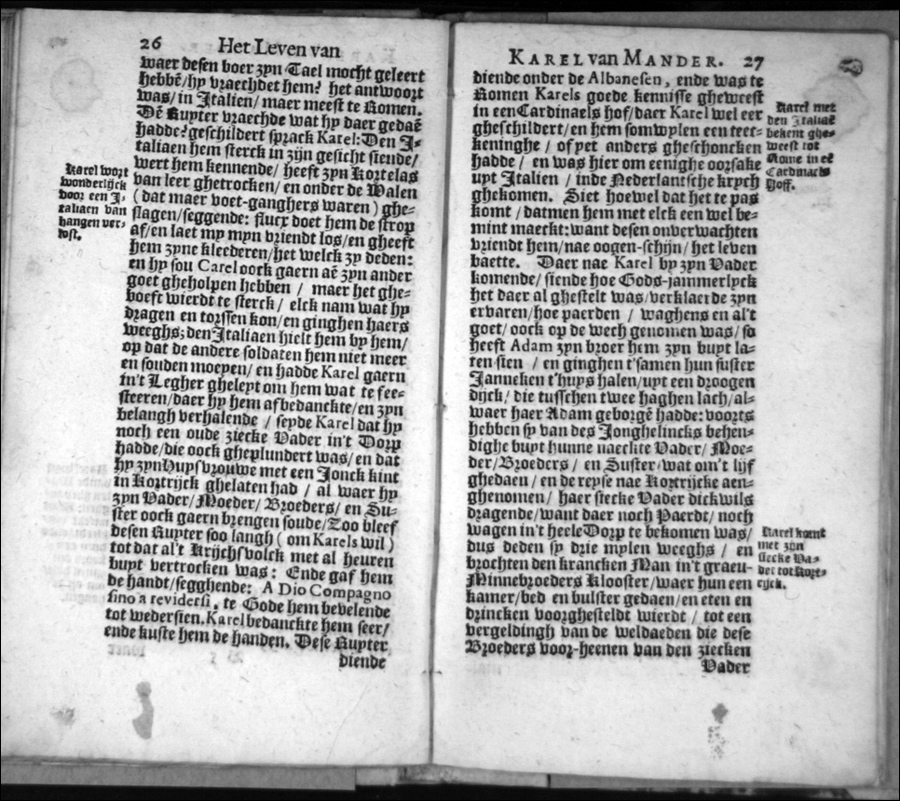 26 Het Leven van
waer desen boer zyn Tael mocht geleert
hebbē/hy vraechdet hem? het antwoort
was/in Italien/ maer meest te Romen.
Dē Ruyter vraechde wat hy daer gedaē
hadde? geschildert sprack Karel: Den I-
taliaen hem sterck in zijn gesicht siende/
wert hem kennende/ heeft zyn Kortelas
van leer ghetrocken/ en onder de Walen
(dat maer voet-ganghers waren) ghe-
slagen/seggende: flucx doet hem de strop
af/en laet my myn vriendt los/en gheeft
hem zyne kleederen/het welck zy deden:
en hy sou Carel oock gaern aē zyn ander
goet gheholpen hebben / maer het ghe-
boeft wierdt te sterck / elck nam wat hy
dragen en torssen kon/en ginghen haers
weeghs; den Italiaen hielt hem by hem/
op dat de andere soldaten hem niet meer
en souden moeyen/ en hadde Karel gaern
in't Legher gheleyt om hem wat te fee-
steeren/daer hy hem af bedanckte/en zyn
belangh verhalende / seyde Karel dat hy
noch een oude ziecke Vader in't Dorp
hadde/die oock gheplundert was/en dat
hy zyn Huysvrouwe met een Jonck kint
in Kortrijck ghelaten had / al waer hy
zyn Vader/Moeder/ Broeders/ en Su-
ster oock gaern brengen soude/Zoo bleef
desen Ruyter soo langh (om Karels wil)
tot dat al't Krijchsvolck met al heuren
buyt vertrocken was: Ende gaf hem
de handt/segghende: A Dio Compagno
sino a revidersi, te Gode hem bevelende
tot wedersien. Karel bedanckte hem seer/
ende kuste hem de handen. Dese Ruyter
diende
Karel wort
wonderlijck
door een I-
taliaen van
hangen ver-
lost.
KAREL van MANDER. 27
diende onder de Albanesen, ende was te
Romen Karels goede kennisse gheweest
in een Cardinaels hof/daer Karel wel eer
gheschildert/en hem somwylen een teec-
keninghe / of yet anders gheschoncken
hadde / en was hier om eenighe oorsake
uyt Italien / inde Nederlantsche krych
ghekomen. Siet hoewel dat het te pas
komt / datmen hem met elck een wel be-
mint maeckt: want desen onverwachten
vriendt hem/nae oogen-schijn/ het leven
baette. Daer nae Karel by zyn Vader
komende/ siende hoe Gods-jammerlyck
het daer al ghestelt was/verklaerde zyn
ervaren/hoe paerden / waghens en al't
goet/ oock op de wech genomen was/ so
heeft Adam zyn broer hem zyn buyt la-
ten sien / en ginghen t'samen hun suster
Janneken t'huys halen/uyt een droogen
dijck/ die tusschen twee haghen lach/al-
waer haer Adam geborgē hadde: voorts
hebben sy van des Jonghelincks behen-
dighe buyt hunne naeckte Vader/ Moe-
der/Broeders / en Suster/wat om't lijf
ghedaen/ en de reyse nae Kortrijcke aen-
ghenomen / haer siecke Vader dickwils
dragende/want daer noch Paerdt/ noch
wagen in't heele Dorp te bekomen was/
dus deden sy drie mylen weeghs / en
brochten den krancken Man in't graeu-
Minnebroeders Klooster/waer hun een
kamer/bed en bulster gedaen/en eten en
drincken voorghesteldt wierdt / tot een
vergeldingh van de weldaeden die dese
Broeders voor-heenen van den ziecken
Vader
Karel met
den Italiaē
bekent ghe-
weest tot
Rome in eē
Cardinaels
Hoff.
Karel komt
met zijn
siecke Va-
der tot Kort-
ryck.